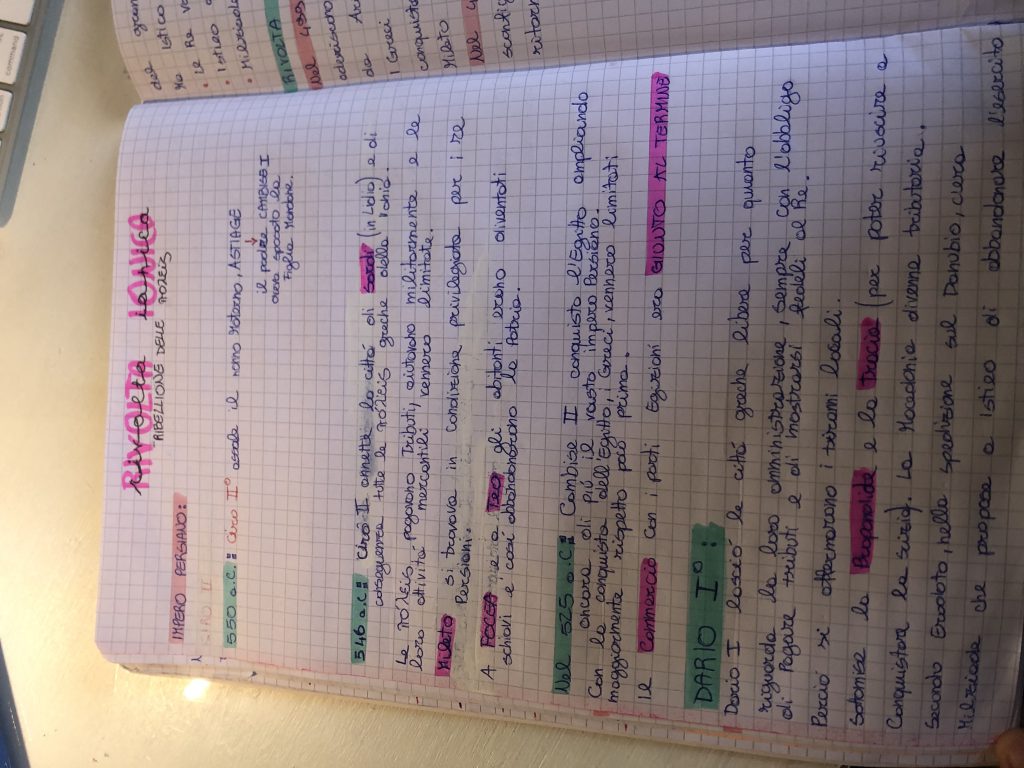 RIVOLTA IONICA
RIBELLIONE DELLE πόλεις
IMPERO PERSIANO:
CIRO II
550 a.C.: Ciro II° assale il nonno materno, ASTIAGE
il padre CAMBISE I
aveva sposato la
figlia Mandane.
546 a.C.: Ciro II annette la città di Sardi (in Lidia) e di
conseguenza tutte le πόλεις greche della Ionia.
Le πόλεις pagavano Tributi, aiutavano militarmente e le
loro attività mercantili vennero limitate.
Mileto si trovava in condizione privilegiata per i re
Persiani.
A FOCEA e a Teo gli abitanti erano diventati
schiavi e così abbandonarono la Patria.
Nel 525 a.C: Cambise II conquista l'Egitto ampliando
ancora di più il vasto impero Persiano.
Con la conquista dell'Egitto, i Greci, vennero limitati
maggiormente rispetto a prima.
Il Commercio con i porti Egiziani era GIUNTO AL TERMINE
DARIO I°:
Dario I lasciò le città greche libere per quanto
riguarda la loro amministrazione, sempre con l'obbligo
di Pagare tributi e di mostrarsi fedeli al Re.
Perciò si affermarono i tiranni locali.
Sottomise la Propontide e la Tracia (per poter riuscire a
Conquistare la Scizia). La Macedonia divenne tributaria.
Secondo Erodoto, nella spedizione sul Danubio, c'era
Milziade che propose a Istieo di abbandonare l'esercito
RIVOLTA
Nel 499
I Greci
conquista
Mileto
Nel 4